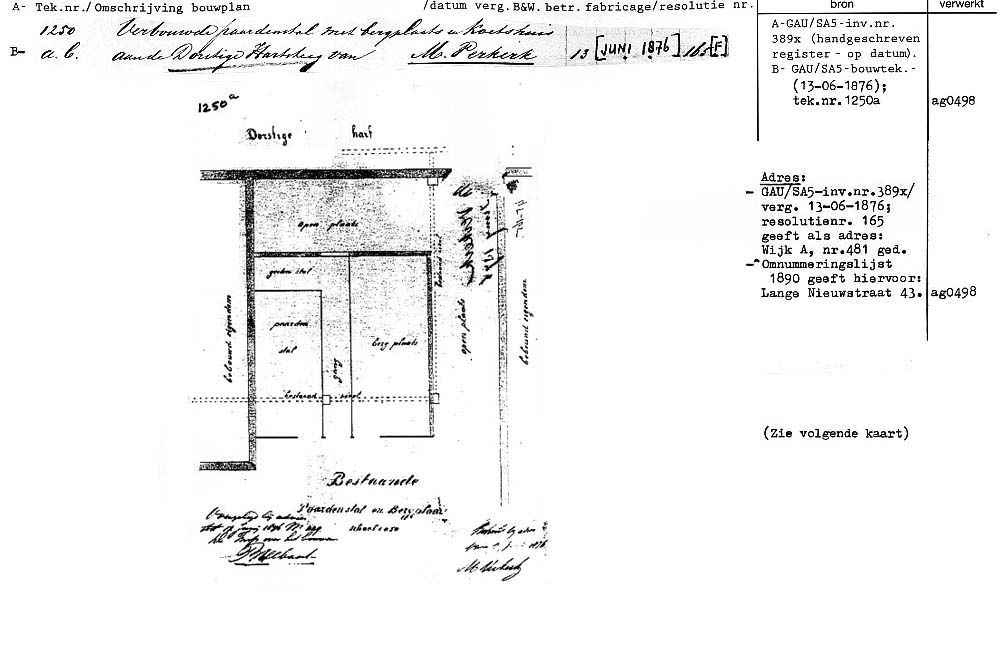 A- Tek.nr./Omschrijving bouwplan /datum verg.B&W. betr. fabricage/resolutie nr. bron verwerkt
1250 Verbouwde paardenstal met bergplaats en Koetshuis
B- a. b. aan de Dorstige Hartsteeg van M. Perkerk 13 [JUNI 1876] 165 [F]
A-GAU/SA5-inv.nr.
389x (handgeschreven
register - op datum).
B- GAU/SA5-bouwtek.-
(13-06-1876);
tek.nr.1250a ag0498
1250a
Dorstige hart
Adres:
- GAU/SA5-inv.nr.389x/
verg. 13-06-1876;
resolutienr. 165
geeft als adres:
Wijk A, nr.481 ged.
- Omnummeringslijst
1890 geeft hiervoor:
Lange Nieuwstraat 43. ag0498
open plaats
paarden
stal
gang
berg plaats
bebouwd eigendom
open plaats
bebouwd eigendom
bestaand riool
(Zie volgende kaart)
Bestaande
Paardenstal en Bergplaats